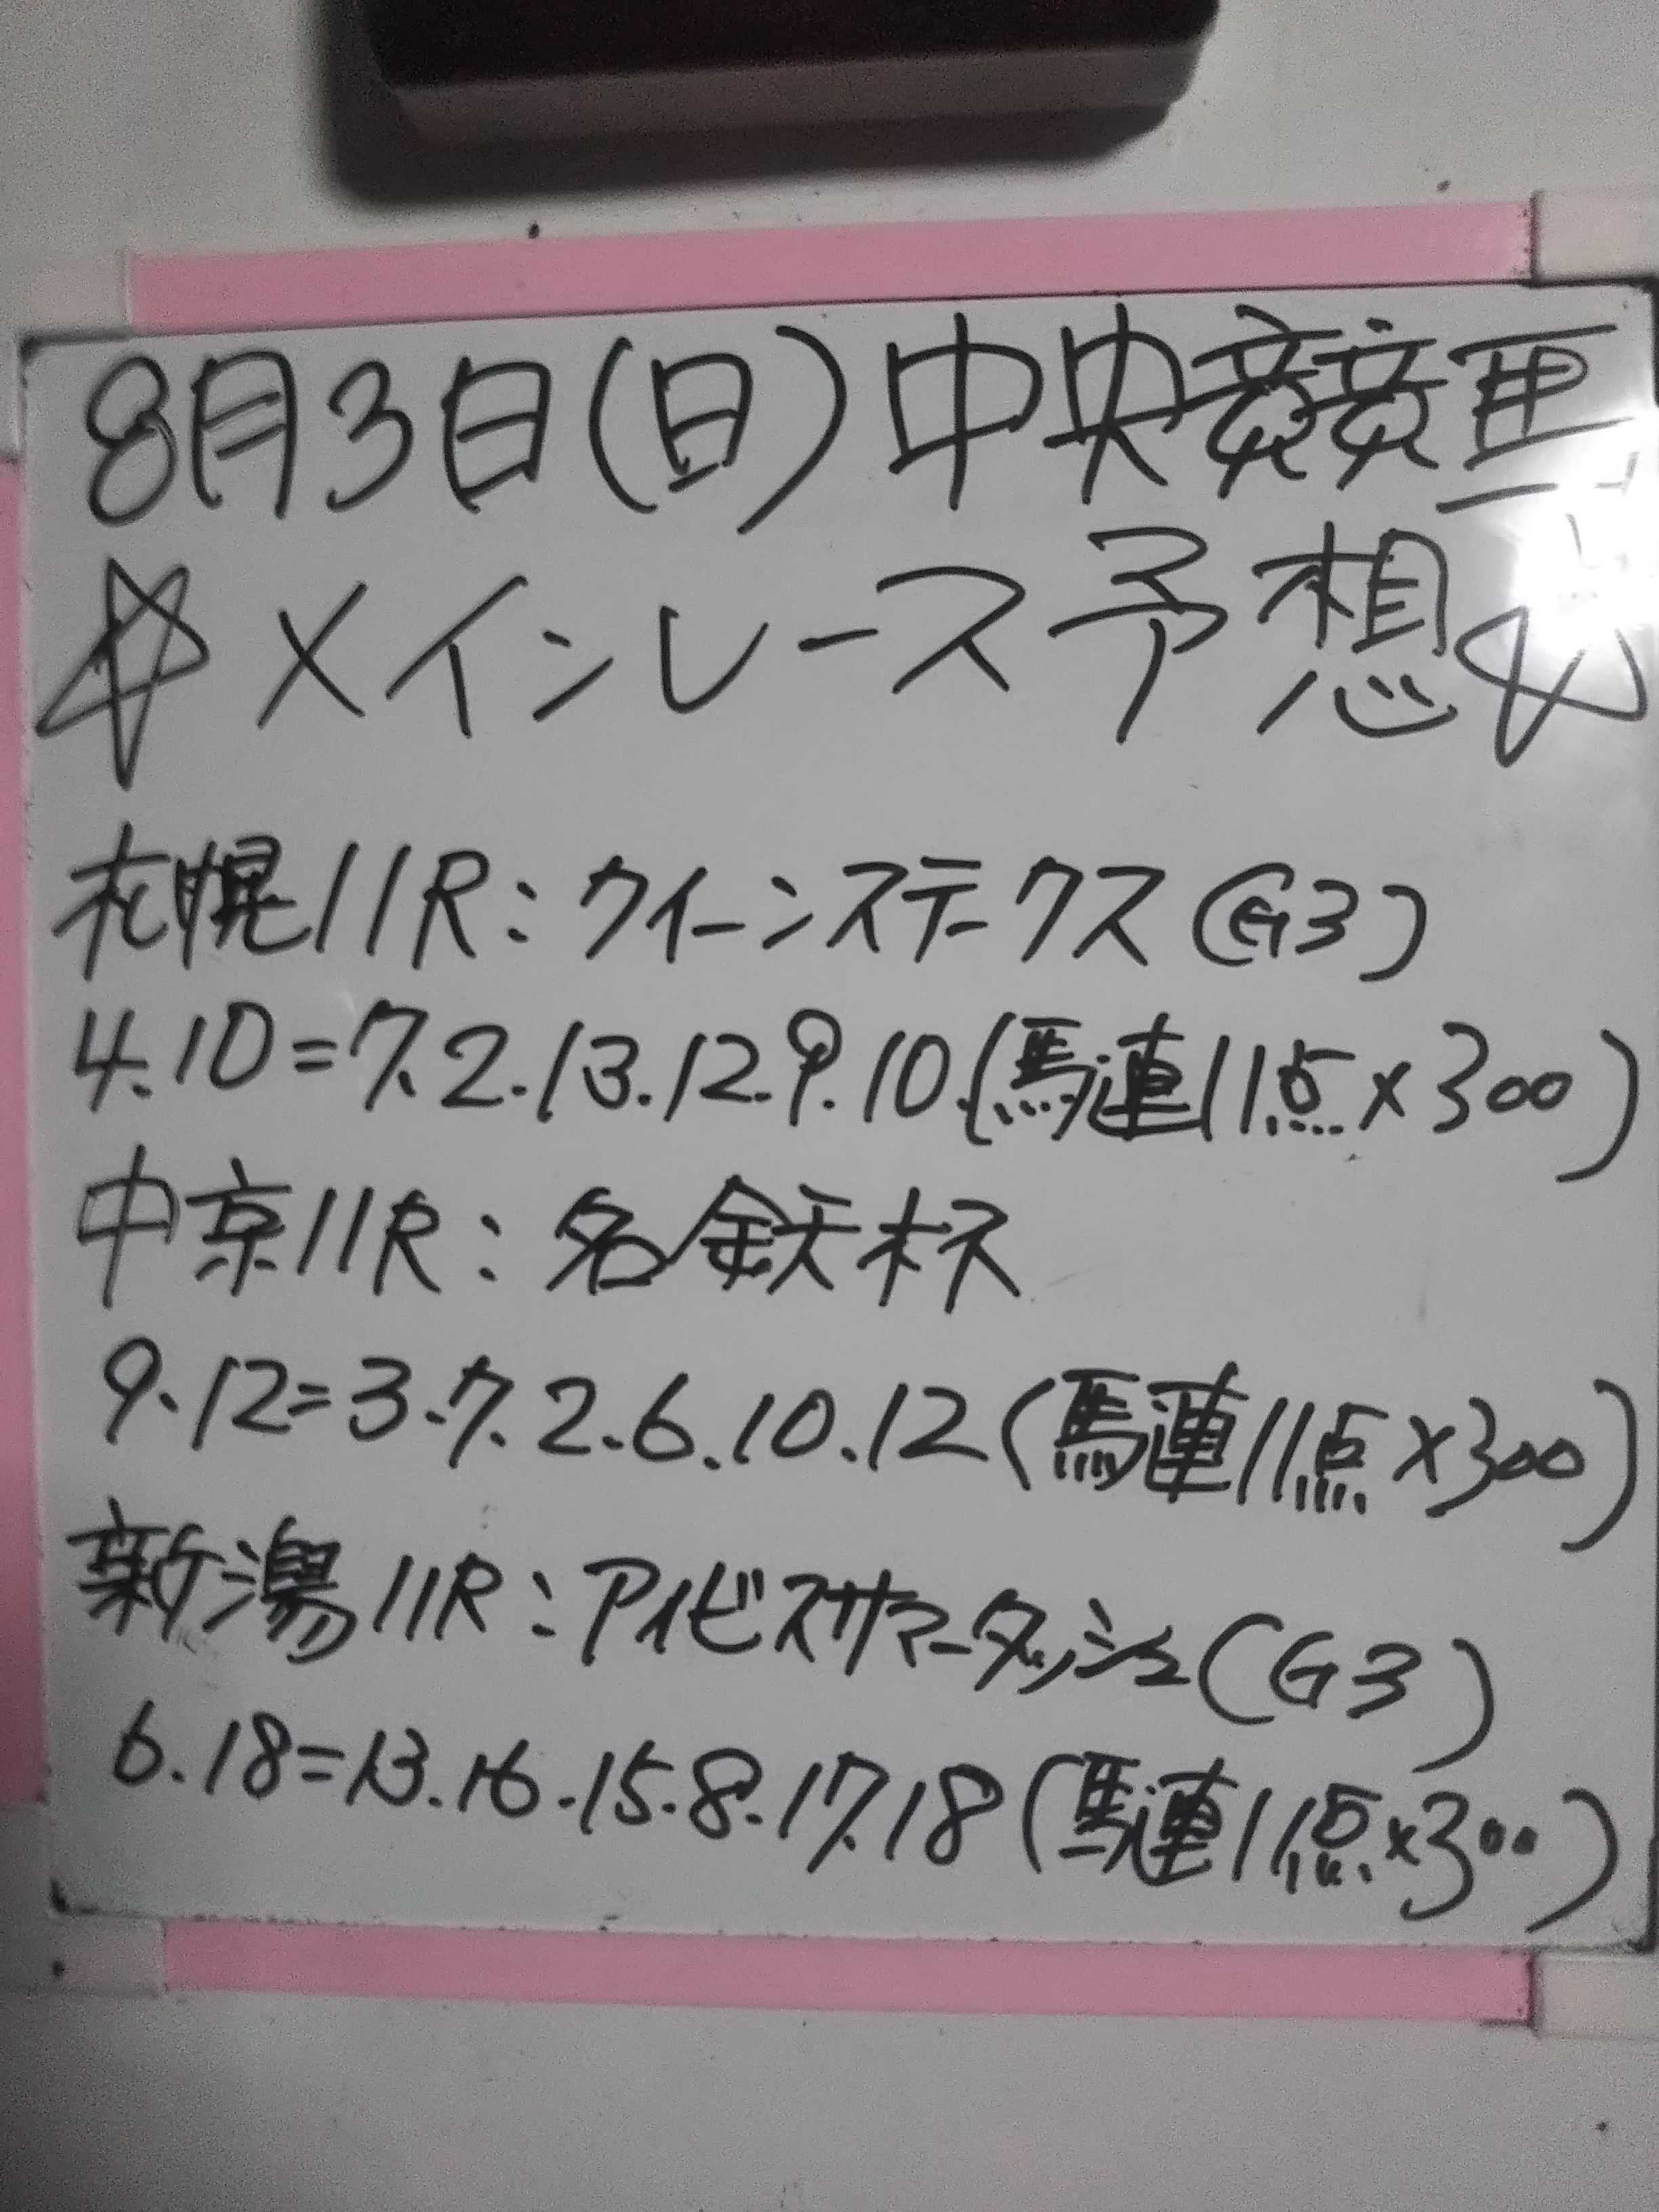 8月3日(日)中央競馬
☆メインレース予想☆
札幌11R:クイーンステークス(G3)
4.10=7.2.13.12.9.10.(馬連11点×300)
中京11R:名鉄杯
9.12=3.7.2.6.10.12(馬連11点×300)
新潟11R:アイビスサマーダッシュ(G3)
6.18=13.16.15.8.17.18(馬連11点×300)